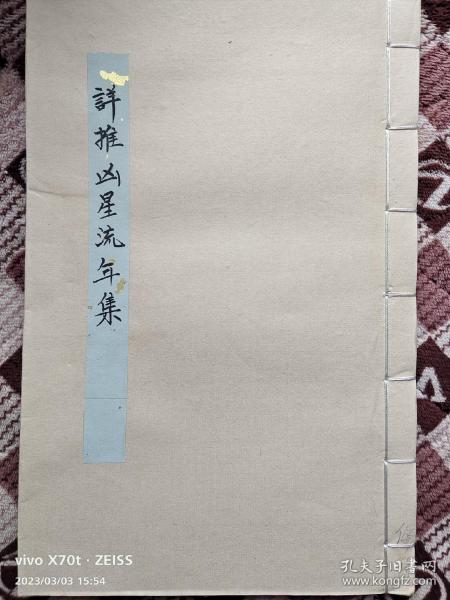 詳推凶星流年集
vivo X70t · ZEISS
2023/03/03 15:54
孔夫子旧书网
www.kongfz.com